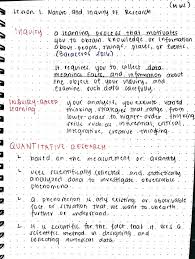 Lesson 1: Nature and Inquiry of Research
INQUIRY - a learning process that motivates
you to obtain knowledge or information
about people, things, places, or events.
(Baraceros 2016)
It requires you to collect data,
meaning facts, and information about
the object of your inquiry, and
examine such data carefully.
INQUIRY-BASED LEARNING
your analysis, you execute varied
thinking strategies that range from
lower-order to higher-order thinking
skills such as inferential, critical,
integrative, creative thinking.
QUANTITATIVE RESEARCH
based on the measurement of quantity
uses scientifically collected and statistically
analyzed data to investigate observable
phenomena
A phenomenon is any existing or observable
fact or situation that we want to unearth
further or understand.
It is scientific for the fact that it uses a
scientific method in designing and
collecting numerical data.